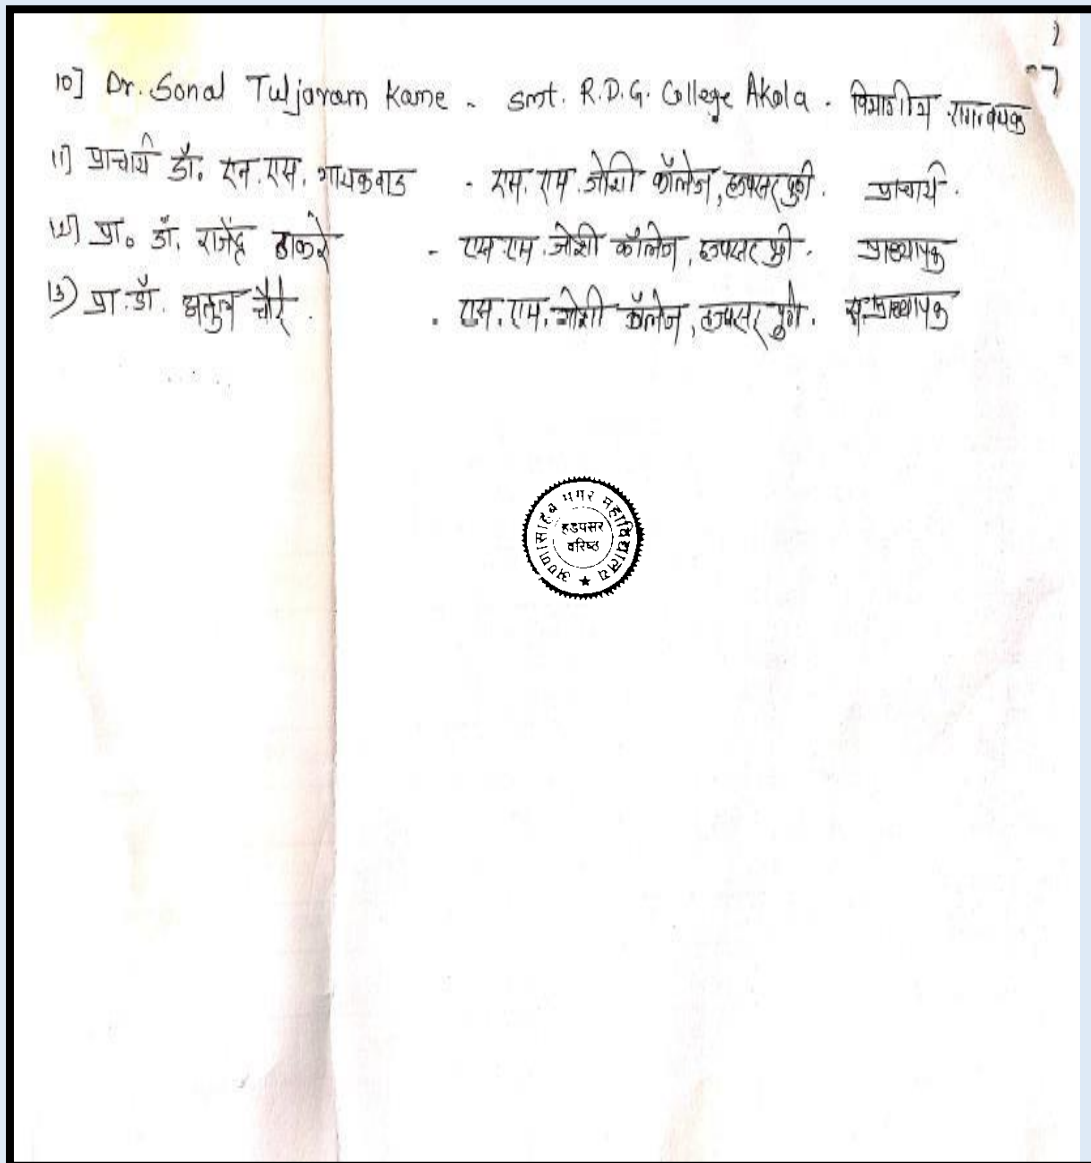 10] Dr. Sonal Tuljaram Kame - smt. R.D.G. College Akola . विभागीय समन्वयक
11] प्राचार्य डॉ. एन. एस. गायकवाड - एस. एम. जोशी कॉलेज, हडपसर पुणे. प्राचार्य.
12] प्रा. डॉ. राजेंद्र ठाकरे - एस. एम. जोशी कॉलेज, हडपसर पुणे. प्राध्यापक
13) प्रा. डॉ. अतुल चौरे . . एस. एम. जोशी कॉलेज, हडपसर पुणे. स. प्राध्यापक
अण्णासाहेब मगर महाविद्यालय ★
हडपसर
वरिष्ठ